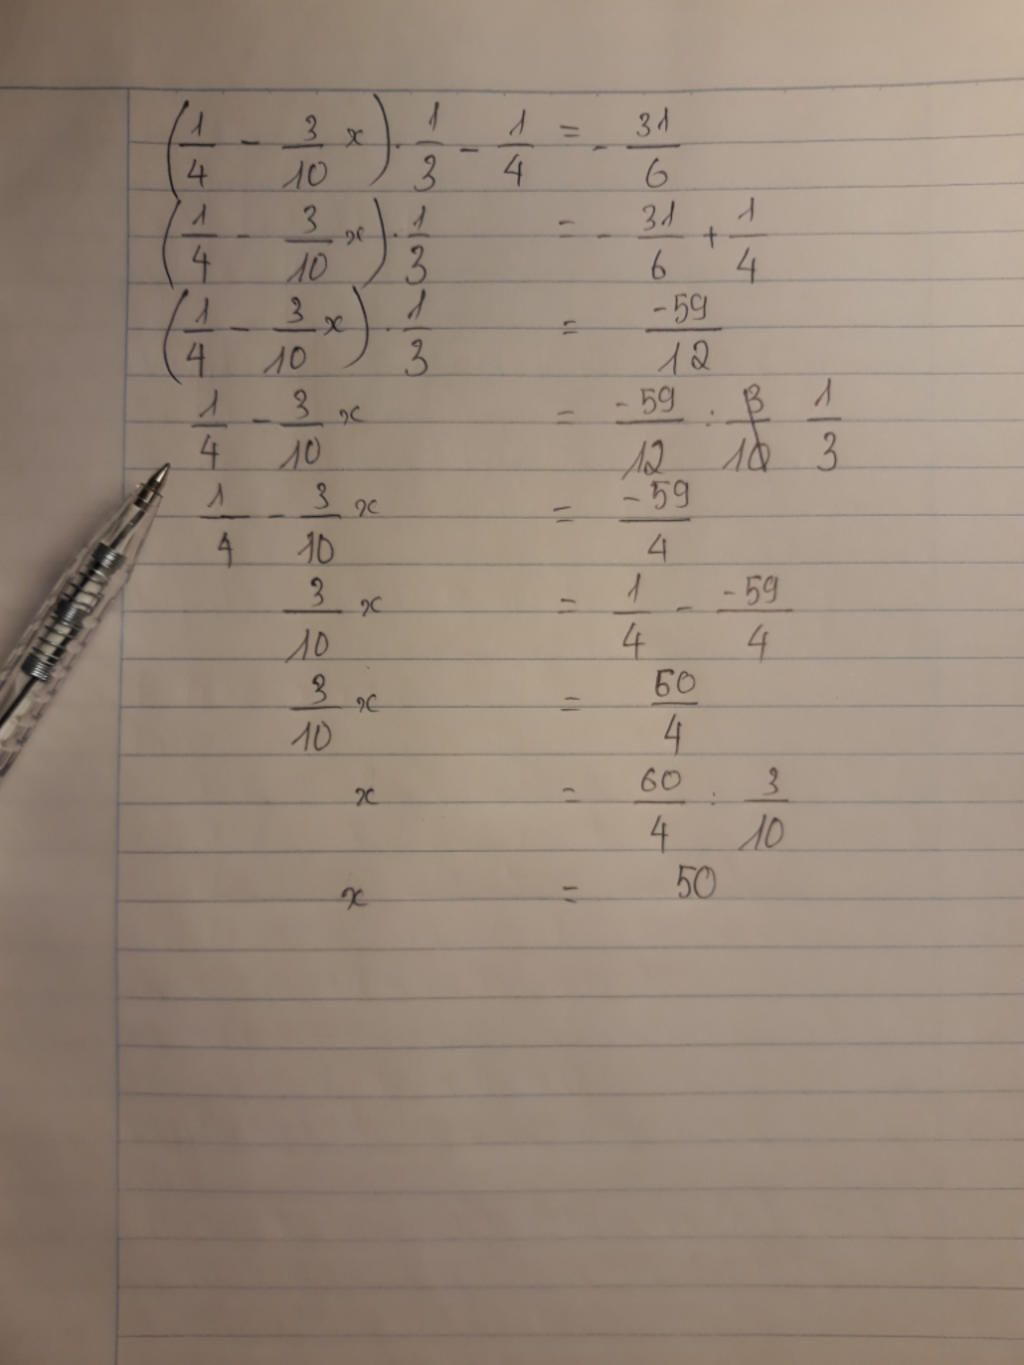 (1/4 - 3/10 x) . 1/3 - 1/4 = - 31/6
(1/4 - 3/10 x) . 1/3 = - 31/6 + 1/4
(1/4 - 3/10 x) . 1/3 = -59/12
1/4 - 3/10 x = -59/12 : 3/10 1/3
1/4 - 3/10 x = -59/4
3/10 x = 1/4 - -59/4
3/10 x = 60/4
x = 60/4 : 3/10
x = 50